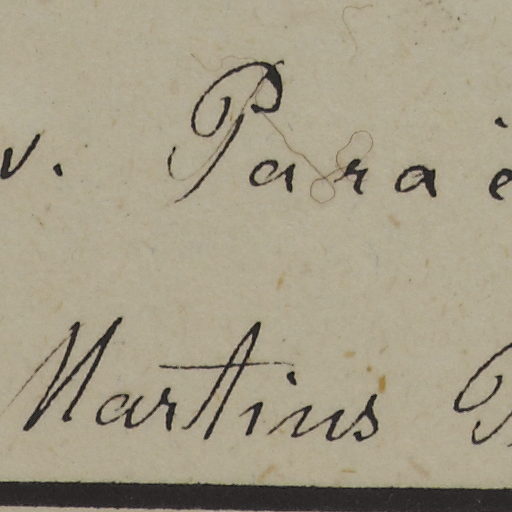 v. Paraë
Martius